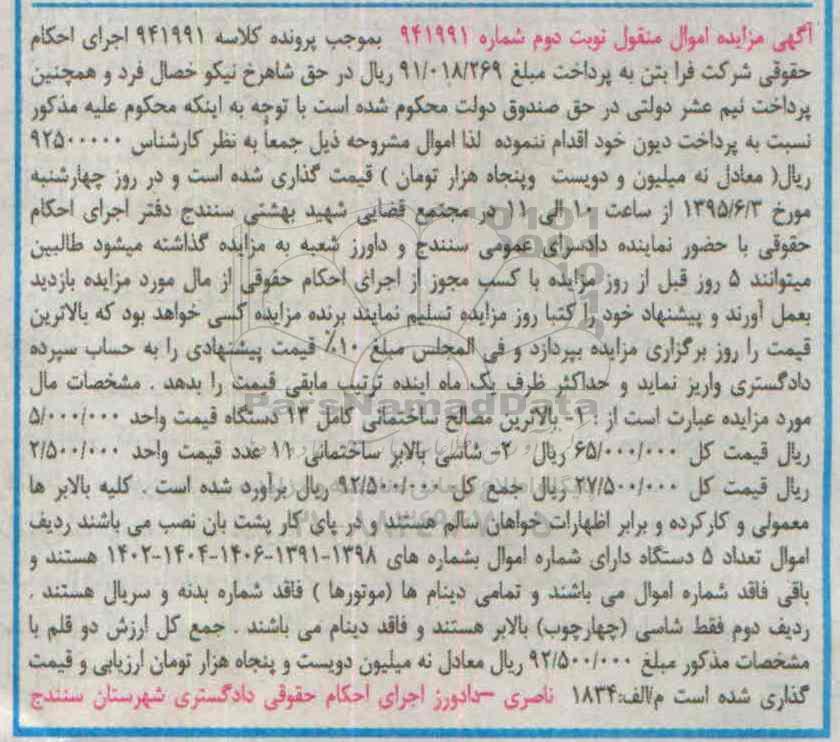 آگهی مزایده اموال منقول نوبت دوم شماره ۹۴۱۹۹۱ بموجب پرونده کلاسه ۹۴۱۹۹۱ اجرای احکام
حقوقی شرکت فرا بتن به پرداخت مبلغ ۹۱/۰۱۸/۲۶۹ ریال در حق شاهرخ نیکو خصال فرد و همچنین
پرداخت نیم عشر دولتی در حق صندوق دولت محکوم شده است با توجه به اینکه محکوم علیه مذکور
نسبت به پرداخت دیون خود اقدام ننموده لذا اموال مشروحه ذیل جمعاً به نظر کارشناس ۹۲۵۰۰۰۰۰
ریال( معادل نه میلیون و دویست وپنجاه هزار تومان ) قیمت گذاری شده است و در روز چهارشنبه
مورخ ۱۳۹۵/۶/۳ از ساعت ۱۰ الی ۱۱ در مجتمع قضایی شهید بهشتی سنندج دفتر اجرای احکام
حقوقی با حضور نماینده دادسرای عمومی سنندج و داورز شعبه به مزایده گذاشته میشود طالبین
میتوانند ۵ روز قبل از روز مزایده با کسب مجوز از اجرای احکام حقوقی از مال مورد مزایده بازدید
بعمل آورند و پیشنهاد خود را کتبا روز مزایده تسلیم نمایند برنده مزایده کسی خواهد بود که بالاترین
قیمت را روز برگزاری مزایده بپردازد و فی المجلس مبلغ ۱۰٪ قیمت پیشنهادی را به حساب سپرده
دادگستری واریز نماید و حداکثر ظرف یک ماه اینده ترتیب مابقی قیمت را بدهد . مشخصات مال
مورد مزایده عبارت است از : ۱- بالاترین مصالح ساختمانی کامل ۱۳ دستگاه قیمت واحد ۵/۰۰۰/۰۰۰
ریال قیمت کل ۶۵/۰۰۰/۰۰۰ ریال ۲- شاسی بالابر ساختمانی ۱۱ عدد قیمت واحد ۲/۵۰۰/۰۰۰
ریال قیمت کل ۲۷/۵۰۰/۰۰۰ ریال جمع کل ۹۲/۵۰۰/۰۰۰ ریال برآورد شده است . کلیه بالابر ها
معمولی و کارکرده و برابر اظهارات خواهان سالم هستند و در پای کار پشت بان نصب می باشند ردیف
اموال تعداد ۵ دستگاه دارای شماره اموال بشماره های ۱۳۹۸-۱۳۹۱-۱۴۰۶-۱۴۰۴-۱۴۰۲ هستند و
باقی فاقد شماره اموال می باشند و تمامی دینام ها (موتورها ) فاقد شماره بدنه و سریال هستند .
ردیف دوم فقط شاسی (چهارچوب) بالابر هستند و فاقد دینام می باشند . جمع کل ارزش دو قلم با
مشخصات مذکور مبلغ ۹۲/۵۰۰/۰۰۰ ریال معادل نه میلیون دویست و پنجاه هزار تومان ارزیابی و قیمت
گذاری شده است م/الف:۱۸۳۴ ناصری –دادورز اجرای احکام حقوقی دادگستری شهرستان سنندج
ParsNamadData